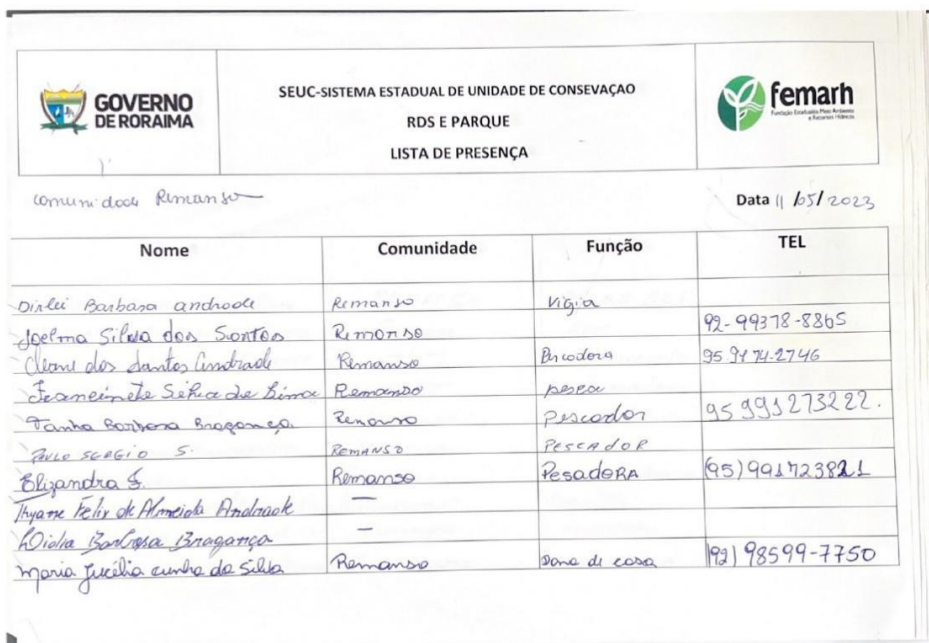 GOVERNO
DE RORAIMA
SEUC-SISTEMA ESTADUAL DE UNIDADE DE CONSEVAÇAO
RDS E PARQUE
LISTA DE PRESENÇA
femarh
Fundação Estadual do Meio Ambiente
e Recursos Hídricos
comunidade Remanso
Data 11/05/2023
Nome Comunidade Função TEL
Dirlei Barbosa andrade Remanso Vigia
Joelma Silva dos Santos Remanso 92-99378-8865
Cleane dos Santos Andrade Remanso 95 9174-2746
Francinete Silva de Lima Remanso pesca
Barbosa Bragança Remanso Pescador 95 991273222.
PAULO SERGIO S. REMANSO PESCADOR
Elizandra S. Remanso PesadoRA (95) 991723821
Thyane Felix de Almeida Andrade —
Barbosa Bragança —
Maria Jucélia cunha da Silva Remanso Dona de casa (92) 98599-7750